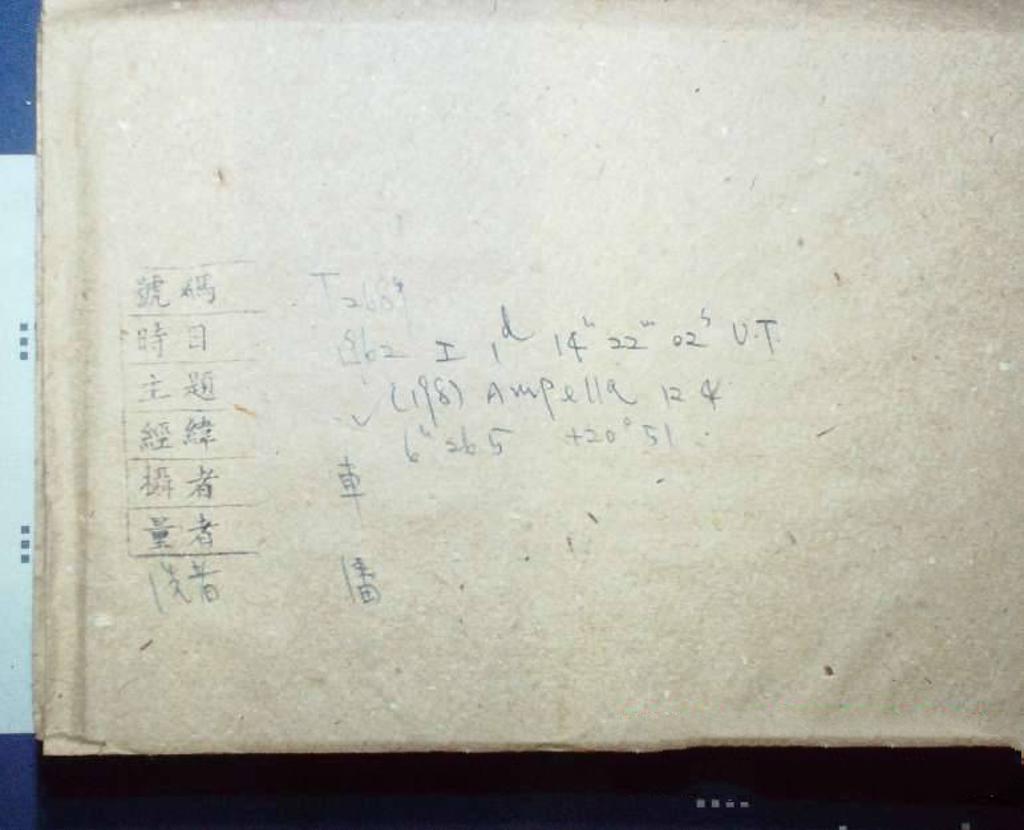 號碼 T2689
時日 1962 I 1ᵈ 14ʰ 22ᵐ 02ˢ U.T.
主題 (198) Ampella 12.4
經緯 6ʰ 26.5 +20° 51
攝者 車
量者
潘